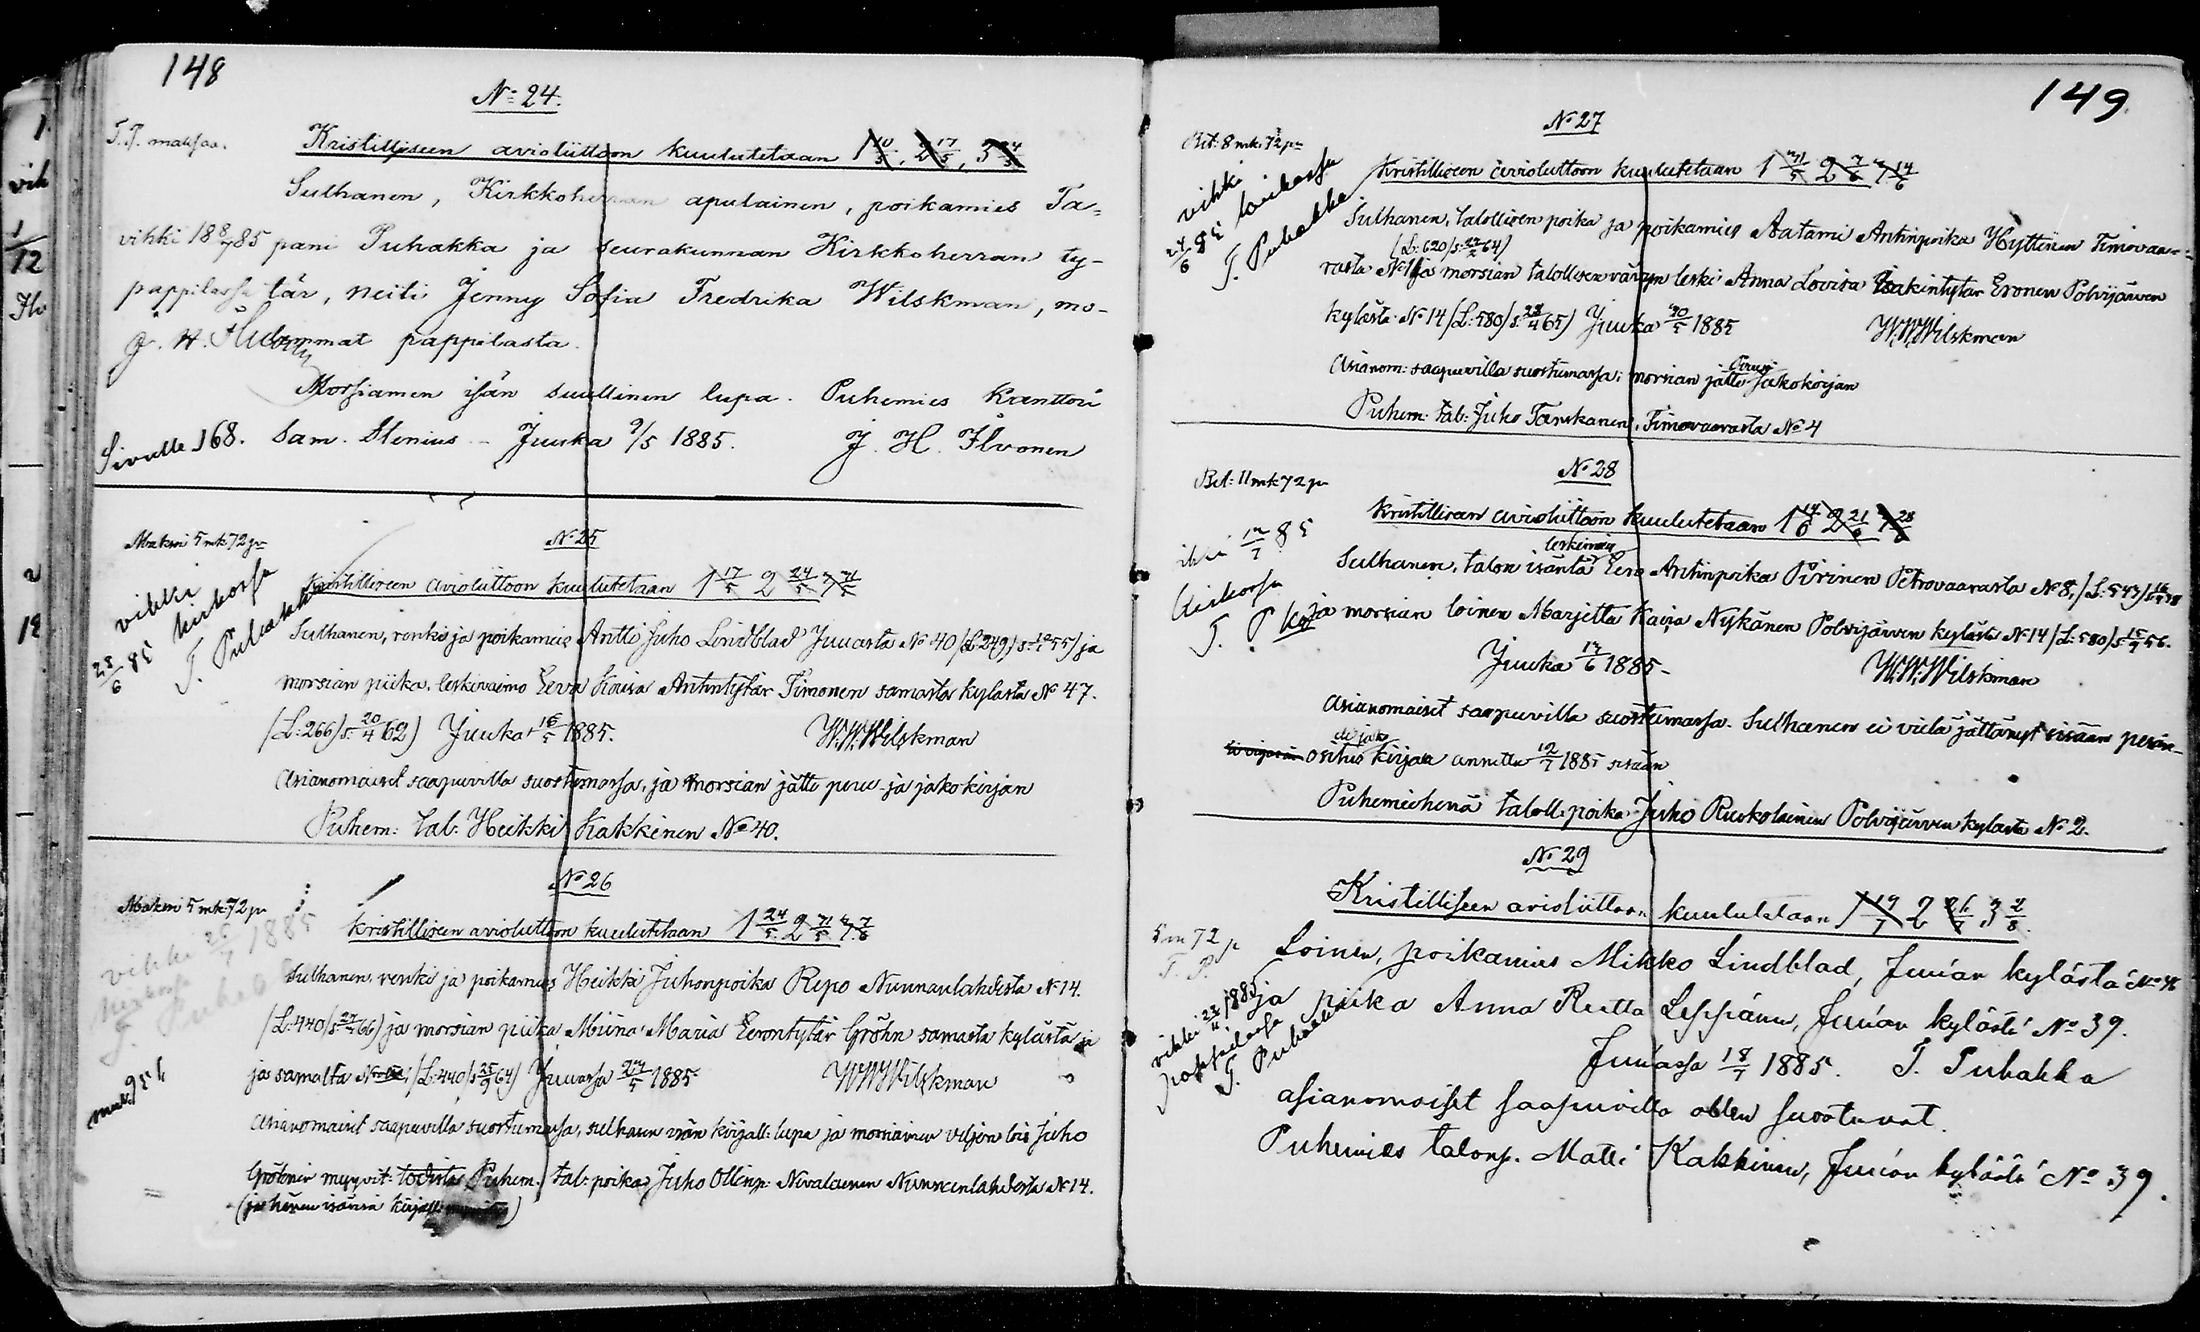 148
No 24.
T.P. maksaa.
Kristilliseen avioliittoon kuulutetaan 1 10/5, 2 17/5, 3 24/5
Sulhanen, Kirkkoherran apulainen, poikamies Ta-
vihki 18 8/7 85 pani Puhakka ja seurakunnan Kirkkoherran ty-
pappilassa tär, neiti Jenny Sofia Fredrika Wilskman, mo-
J. H. lemmat pappilasta.
Morsiamen isän suullinen lupa. Puhemies Kanttori
Sivulle 168. Sam. Stenius - Juuka 9/5 1885. J. H. Ilvonen
Maksoi 5 mk 72 pn
No 25
vihki
25/6 85 kirkossa
T. Puhakka
Kristilliseen avioliittoon kuulutetaan 1 17/5 2 24/5 3 31/5
Sulhanen, renki ja poikamies Antti Juho Lindblad Juuasta No 40 (L:249) ja
morsian piika, leskivaimo Eeva Lovisa Antintytär Timonen samasta kylästä No 47.
(L:266) s: 20/4 62) Juuka 16/5 1885. W.W.Wilskman
Asianomaiset saapuvilla suostumassa, ja morsian jätti peru- ja jakokirjan
Puhem: tal: Heikki Kakkinen No 40.
No 26
Maksoi 5 mk 72 pn
vihki 25/7 1885
kirkossa
T. Puhakka
Kristilliseen avioliittoon kuulutetaan 1 24/5 2 31/5 3 7/6
Sulhanen, renki ja poikamies Heikki Juhonpoika Repo Nunnanlahdesta No 14.
(L:440/s: 27/7 66) ja morsian piika Miina Maria Eerontytär Gröhn samasta kylästä ja
ja samalta (L:440/s 25/9 64) Juuassa 1885 W.W.Wilskman
Asianomaiset saapuvilla suostumassa, sulhasen isän kirjall: lupa ja morsiamen veljen lois Juho
Gröhnin Puhem. tal: poika Juho Ollinp: Nevalainen Nunnanlahdesta No 14.
(ja hänen isänsä kirjall:
149.
No 27
Bet: 8 mk 72 pn
vihki
24/6 85 kirkossa
T. Puhakka
Kristilliseen avioliittoon kuulutetaan 1 31/5 2 7/6 3 14/6
Sulhanen, talollisen poika ja poikamies Aatami Antinpoika Hyttinen Timovaa-
(L: 620/s: 64)
rasta No 1 ja morsian talollisen vävyn leski Anna Lovisa Isakintytär Eronen Polvijärven
kylästä No 14 (L:580/s: 28/4 65) Juuka 30/5 1885 W.W.Wilskman
Asianom: saapuvilla suostumassa; morsian jätti jakokirjan
Puhem: tal: Juho Tanskanen, Timovaarasta No 4
No 28
Bet: 11 mk 72 pn
Kristilliseen avioliittoon kuulutetaan 1 14/6 2 21/6 3 28/6
leskimies
Sulhanen, talon isäntä Eero Antinpoika Piirinen Petrovaarasta No 8, (L: 543/
ja morsian loinen Marjetta Kaisa Nykänen Polvijärven kylästä No 14 (L:580/s: 15/7 56.
Juuka 1885 - W.W.Wilskman
Asianomaiset saapuvilla suostumassa. Sulhanen ei vielä jättänyt sisään perin-
ositus kirjaa annettu 12/7 1885 sisään
Puhemiehenä taloll: poika Juho Ruokolainen Polvijärven kylästä No 2.
No 29
Kristilliseen avioliittoon kuulutetaan 1 19/7 2 26/7 3 2/8
5 m 72 p
T. P.
Loinen, poikamies Mikko Lindblad, Juuan kylästä No 48
ja piika Anna Reetta Leppänen, Juuan kylästä No 39.
pappilassa
T. Puhakka
Juuassa 18/7 1885. T. Puhakka
Asianomaiset saapuvilla ollen suostuvat.
Puhemies talonp. Matti Kakkinen, Juuan kylästä No 39.